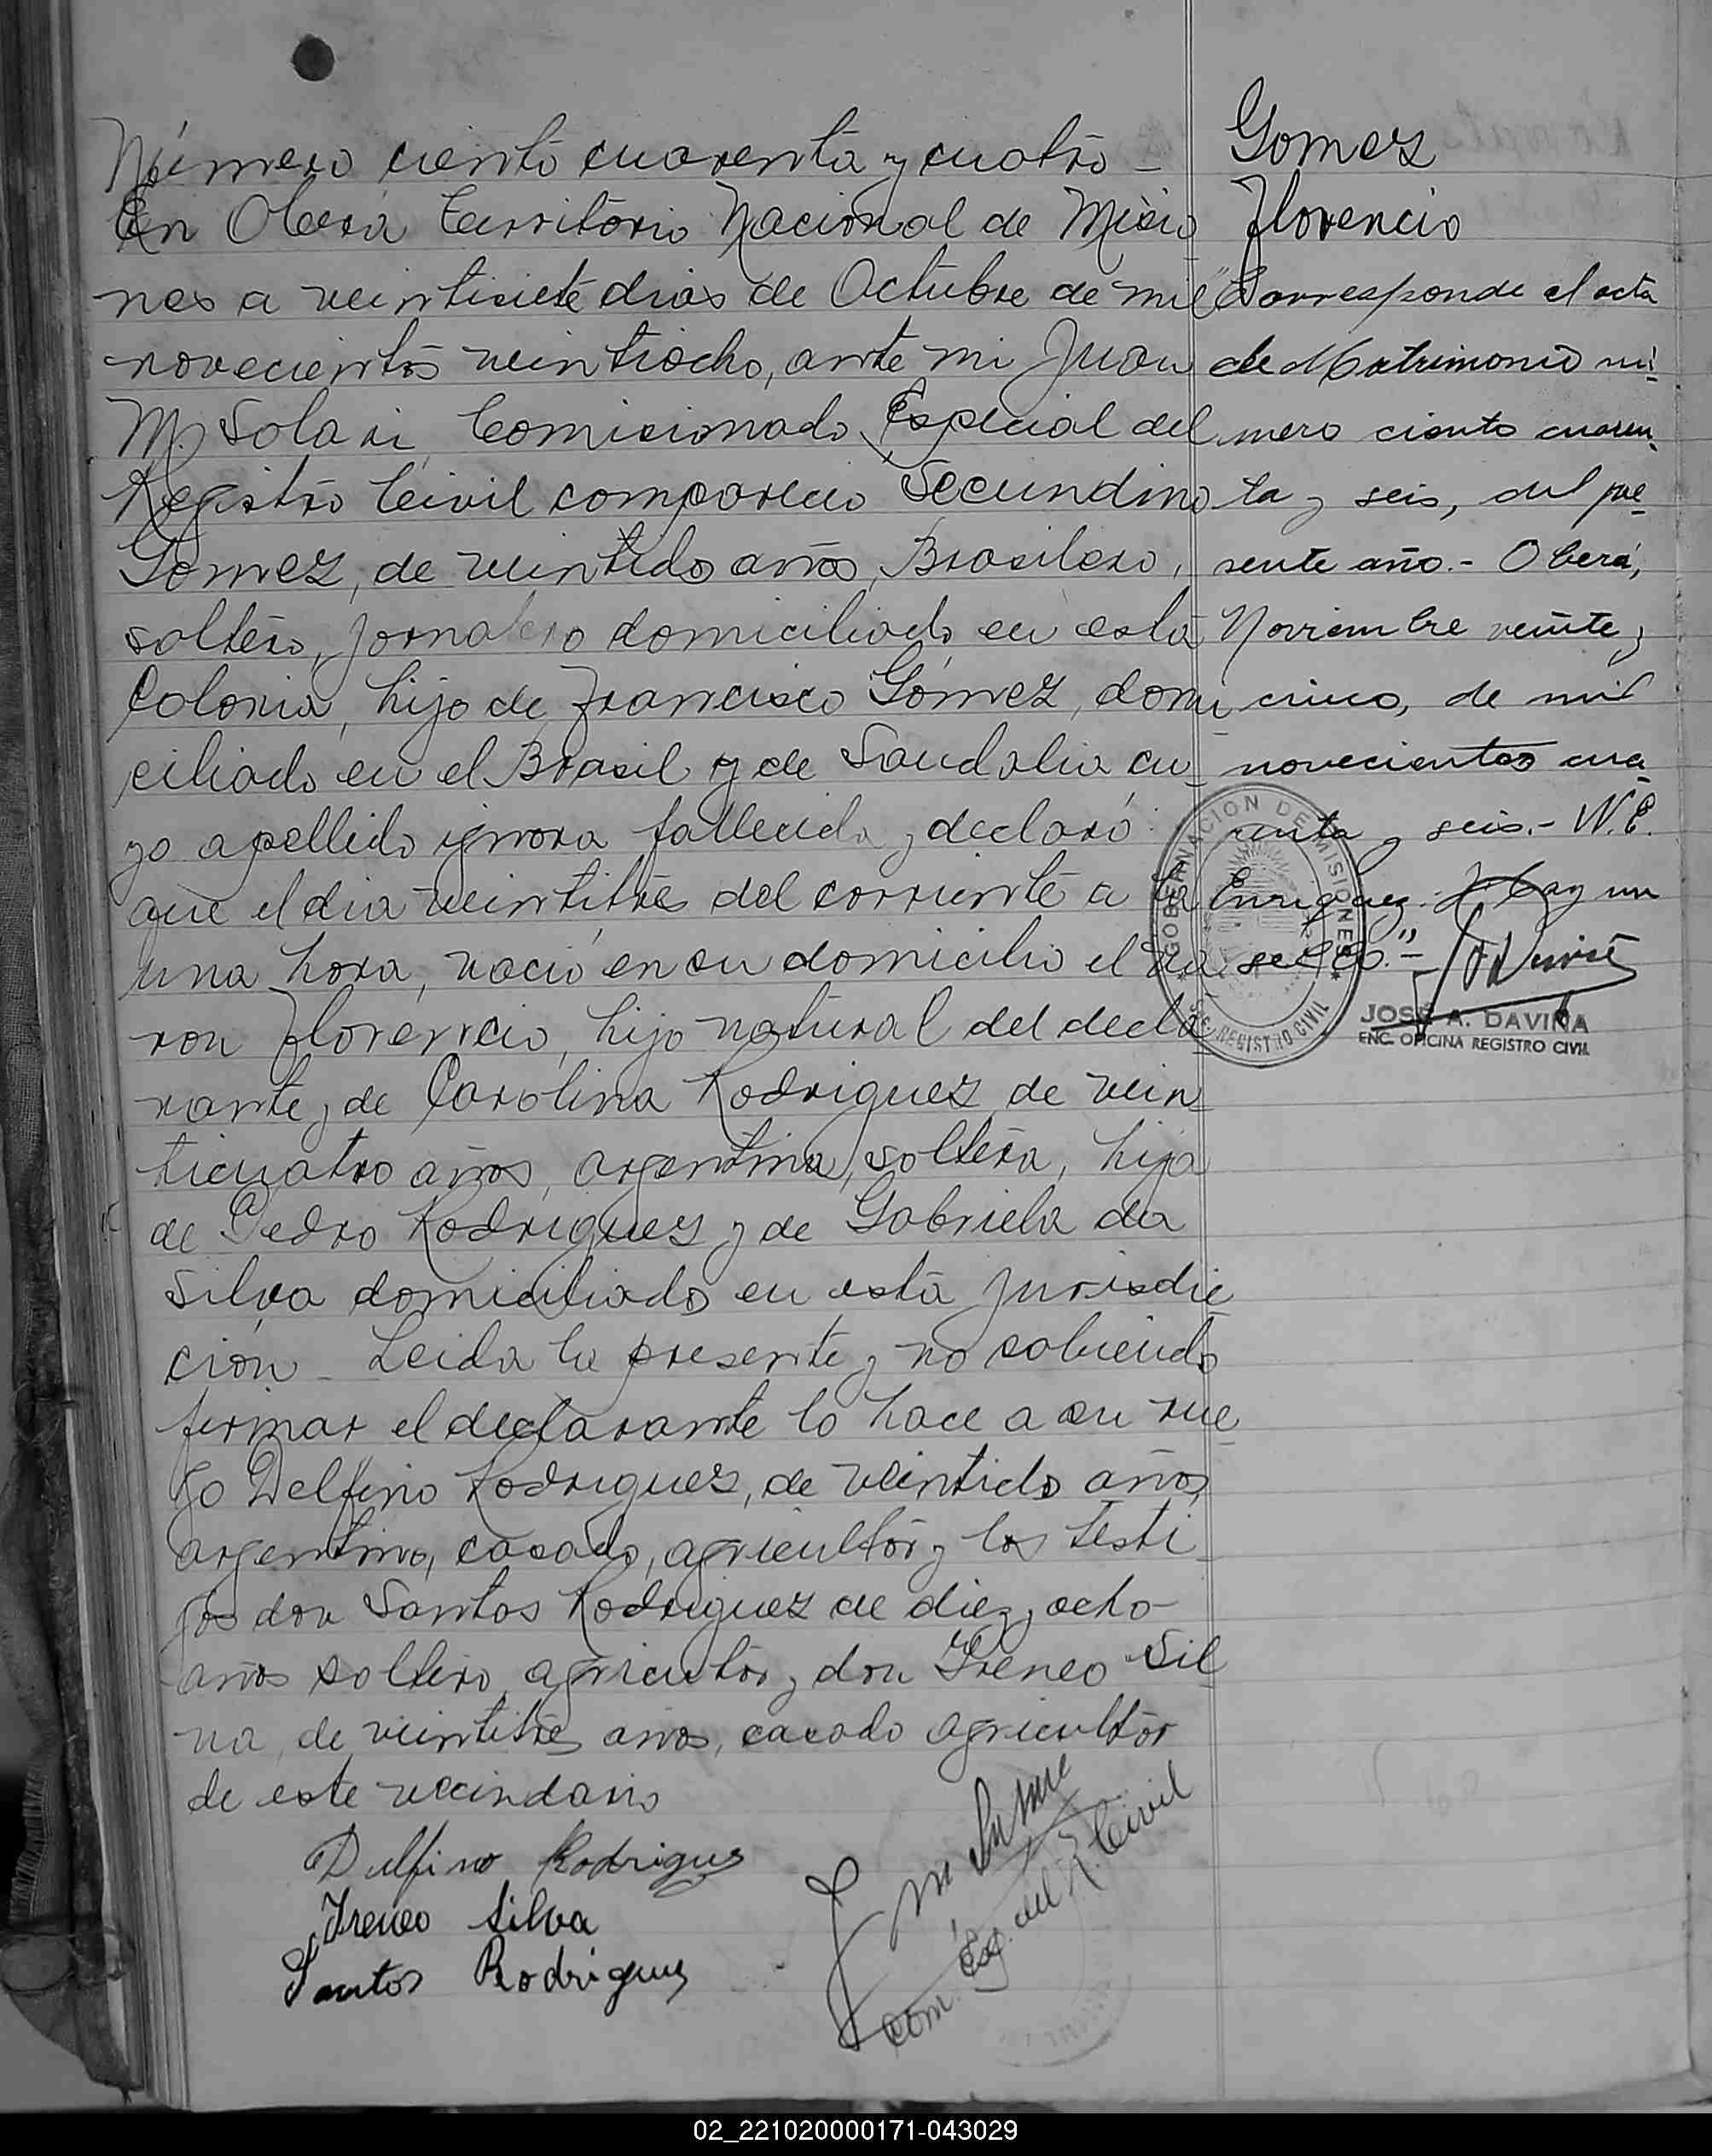 Número ciento cuarenta y cuatro –
En Oberá Territorio Nacional de Misio
nes a veintisiete dias de Octubre de mil
novecientos veintiocho, ante mi Juan
M. Solari Comisionado Especial del
Registro Civil comparecio Secundino
Gomez, de veintido años, Brasilero,
soltero, jornalero domiciliado en esta
Colonia, hijo de Francisco Gómez, domi
ciliado en el Brasil y de Saudalia cu
yo apellido ignora fallecida y declaró:
que el dia veintitres del corriente a la
una hora, nació en su domicilio el va
ron Florencio, hijo natural del decla
rante y de Carolina Rodriguez de vein
ticuatro años, argentina, soltera, hija
de Pedro Rodriguez y de Gabriela da
Silva domiciliados en esta jurisdic
ción – Leida la presente y no sabiendo
firmar el declarante lo hace a su rue
go Delfino Rodriguez, de veintido años
argentino, casado, agricultor y los testi
gos don Santos Rodriguez de diez y ocho
años soltero agricultor y don Ireneo Sil
va, de veintitres años, casado agricultor
de este vecindario
Delfino Rodrigues
Ireneo Silva
Santos Rodrigues
Com. Esp. del R. Civil
Gomez
Florencio
Corresponde el acta
de Matrimonio nú
mero ciento cuaren
ta y seis, del pre
sente año.- Oberá,
Noviembre veinte y
cinco, de mil
novecientos cua
renta y seis.- W.E.
Enriquez. Hay un
sello."–
GOBERNACION DE MISIONES
REGISTRO CIVIL
JOSE A. DAVIÑA
ENC. OFICINA REGISTRO CIVIL
02_221020000171-043029